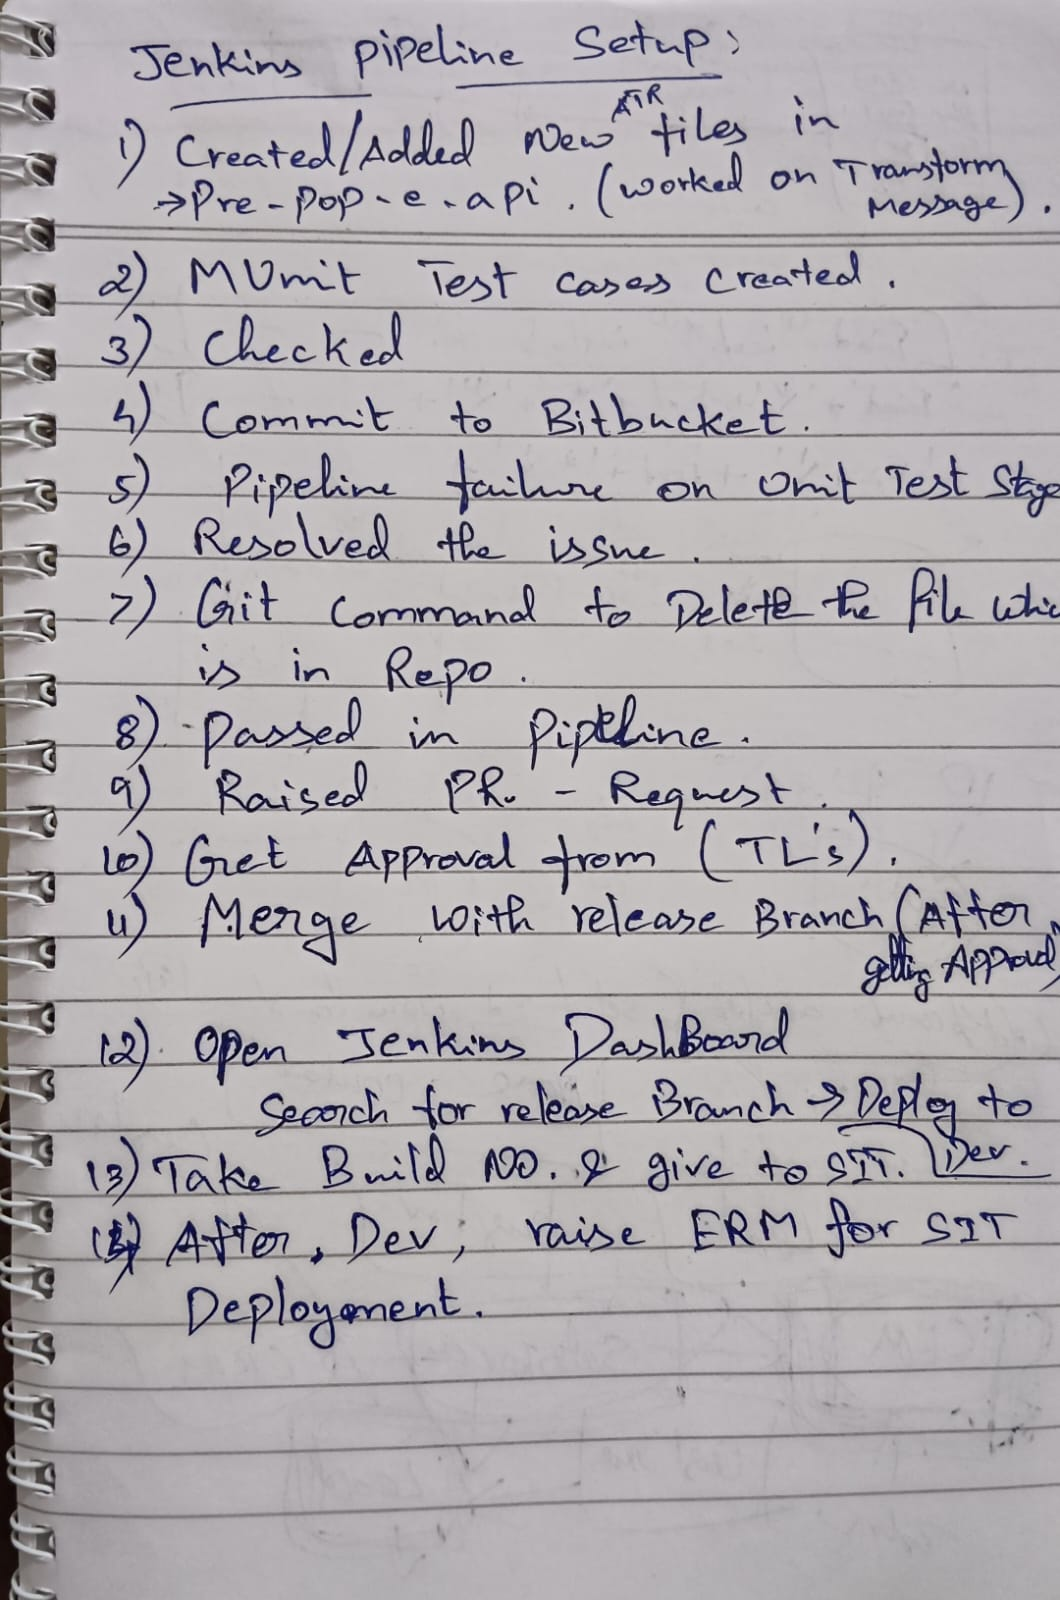 Jenkins Pipeline Setup:
1) Created/Added New ATR files in
→Pre-pop-e-api. (worked on Transform
Message).
2) MUnit Test cases created.
3) Checked
4) Commit to Bitbucket.
5) Pipeline failure on Unit Test Stage
6) Resolved the issue.
7) Git Command to Delete the file whic
is in Repo.
8) Passed in Pipeline.
9) Raised PR. - Request.
10) Get Approval from (TL's).
11) Merge with release Branch (After
getting Approval)
12). Open Jenkins DashBoard
Search for release Branch → Deploy to
Dev.
13) Take Build NO. & give to SIT.
After, Dev, raise ERM for SIT
Deployement.